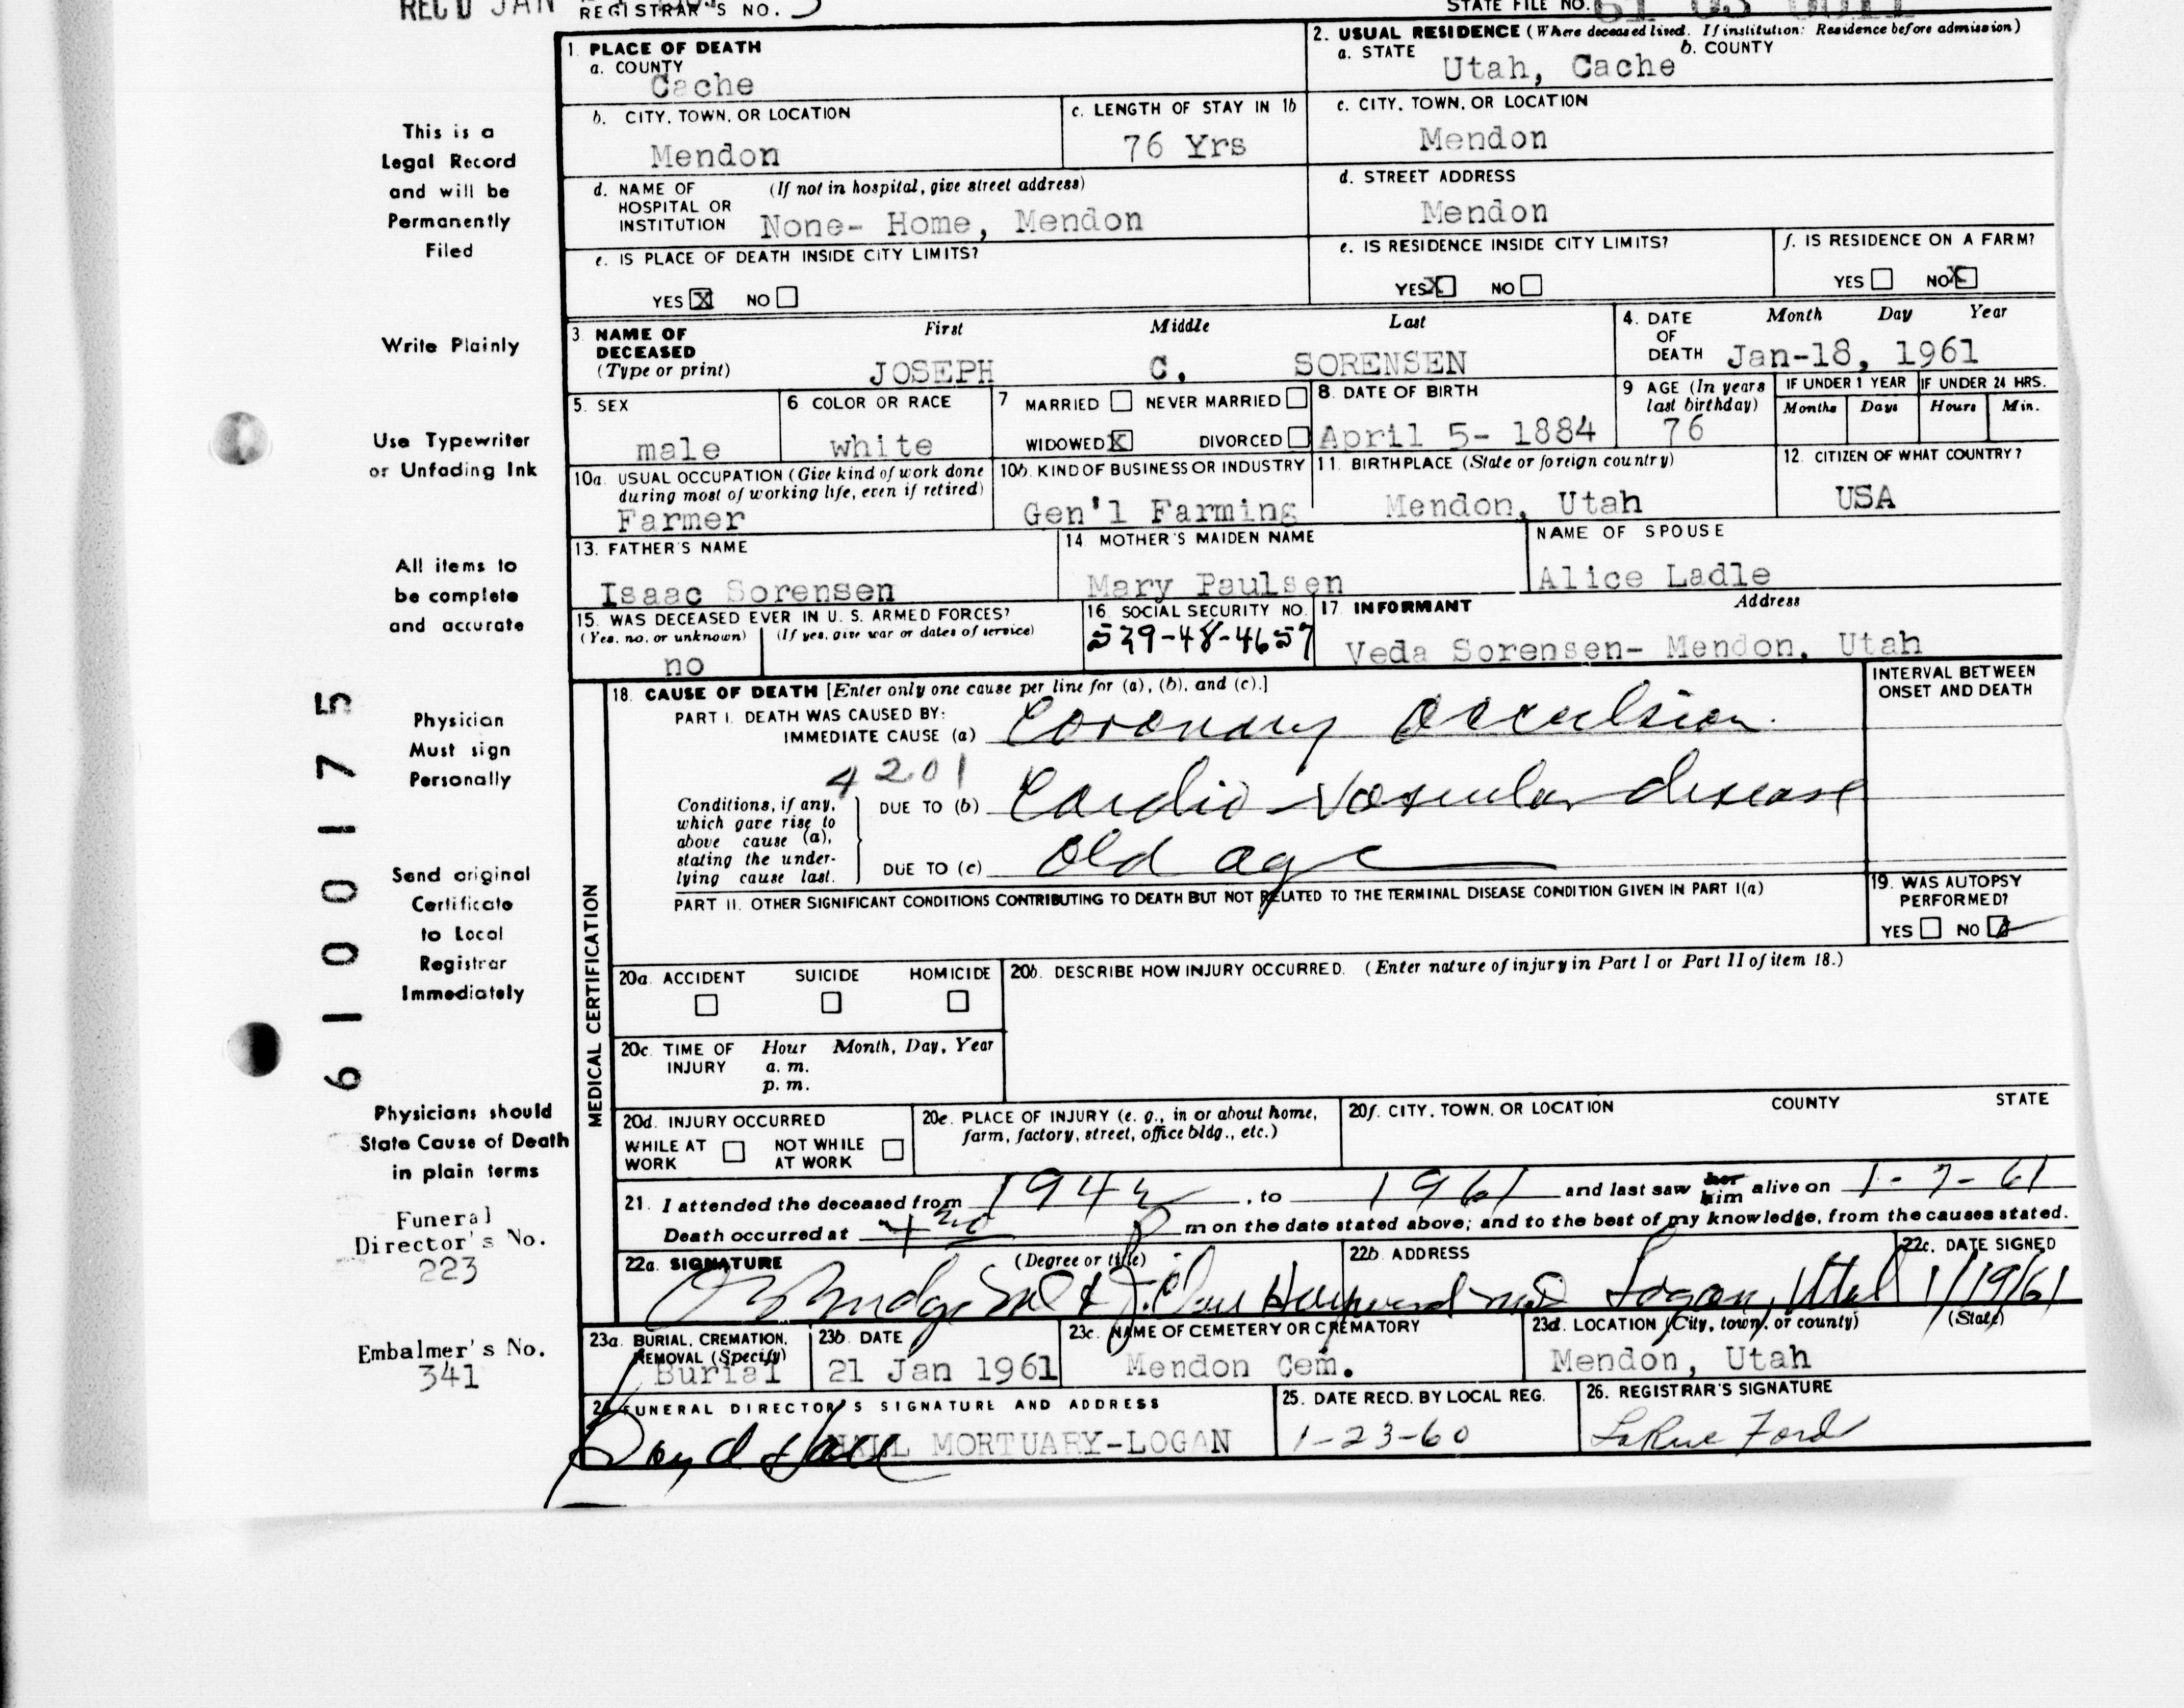 REC'D JAN
REGISTRAR'S NO. 3
STATE FILE NO. 61 03 0011
1. PLACE OF DEATH
a. COUNTY
Cache
2. USUAL RESIDENCE (Where deceased lived. If institution: Residence before admission)
a. STATE b. COUNTY
Utah, Cache
b. CITY, TOWN, OR LOCATION
Mendon
c. LENGTH OF STAY IN 1b
76 Yrs
c. CITY, TOWN, OR LOCATION
Mendon
d. NAME OF (If not in hospital, give street address)
HOSPITAL OR
INSTITUTION None- Home, Mendon
d. STREET ADDRESS
Mendon
e. IS PLACE OF DEATH INSIDE CITY LIMITS?
YES X NO
e. IS RESIDENCE INSIDE CITY LIMITS?
YES X NO
f. IS RESIDENCE ON A FARM?
YES NO X
3 NAME OF First Middle Last
DECEASED
(Type or print) JOSEPH C. SORENSEN
4. DATE Month Day Year
OF
DEATH Jan-18, 1961
5. SEX
male
6 COLOR OR RACE
white
7 MARRIED NEVER MARRIED
WIDOWED X DIVORCED
8. DATE OF BIRTH
April 5- 1884
9 AGE (In years
last birthday)
76
IF UNDER 1 YEAR
Months Days
IF UNDER 24 HRS.
Hours Min.
10a. USUAL OCCUPATION (Give kind of work done
during most of working life, even if retired)
Farmer
10b. KIND OF BUSINESS OR INDUSTRY
Gen'l Farming
11. BIRTHPLACE (State or foreign country)
Mendon, Utah
12. CITIZEN OF WHAT COUNTRY?
USA
13. FATHER'S NAME
Isaac Sorensen
14. MOTHER'S MAIDEN NAME
Mary Paulsen
NAME OF SPOUSE
Alice Ladle
15. WAS DECEASED EVER IN U. S. ARMED FORCES?
(Yes, no, or unknown) (If yes, give war or dates of service)
no
16. SOCIAL SECURITY NO.
529-48-4657
17. INFORMANT Address
Veda Sorensen- Mendon, Utah
MEDICAL CERTIFICATION
18. CAUSE OF DEATH [Enter only one cause per line for (a), (b), and (c).]
INTERVAL BETWEEN
ONSET AND DEATH
PART I. DEATH WAS CAUSED BY:
IMMEDIATE CAUSE (a) Coronary Occulsion
4201
Conditions, if any,
which gave rise to
above cause (a),
stating the under-
lying cause last.
DUE TO (b) Cardio Vascular disease
DUE TO (c) Old age
PART II. OTHER SIGNIFICANT CONDITIONS CONTRIBUTING TO DEATH BUT NOT RELATED TO THE TERMINAL DISEASE CONDITION GIVEN IN PART I(a)
19. WAS AUTOPSY
PERFORMED?
YES NO
20a. ACCIDENT SUICIDE HOMICIDE
20b. DESCRIBE HOW INJURY OCCURRED. (Enter nature of injury in Part I or Part II of item 18.)
20c. TIME OF Hour Month, Day, Year
INJURY a. m.
p. m.
20d. INJURY OCCURRED
WHILE AT NOT WHILE
WORK AT WORK
20e. PLACE OF INJURY (e. g., in or about home,
farm, factory, street, office bldg., etc.)
20f. CITY, TOWN, OR LOCATION COUNTY STATE
21. I attended the deceased from 194 , to 1961 and last saw her him alive on 1-7-61
Death occurred at 4 30 P m on the date stated above; and to the best of my knowledge, from the causes stated.
22a. SIGNATURE (Degree or title)
O B Budge MD & J. Clare Hayward MD
22b. ADDRESS
Logan, Utah
22c. DATE SIGNED
1/19/61
23a. BURIAL, CREMATION,
REMOVAL (Specify)
Burial
23b. DATE
21 Jan 1961
23c. NAME OF CEMETERY OR CREMATORY
Mendon Cem.
23d. LOCATION (City, town, or county) (State)
Mendon, Utah
24. FUNERAL DIRECTOR'S SIGNATURE AND ADDRESS
HALL MORTUARY-LOGAN
25. DATE RECD. BY LOCAL REG.
1-23-60
26. REGISTRAR'S SIGNATURE
LaRue Ford
This is a
Legal Record
and will be
Permanently
Filed
Write Plainly
Use Typewriter
or Unfading Ink
All items to
be complete
and accurate
Physician
Must sign
Personally
Send original
Certificate
to Local
Registrar
Immediately
Physicians should
State Cause of Death
in plain terms
Funeral
Director's No.
223
Embalmer's No.
341
6100175